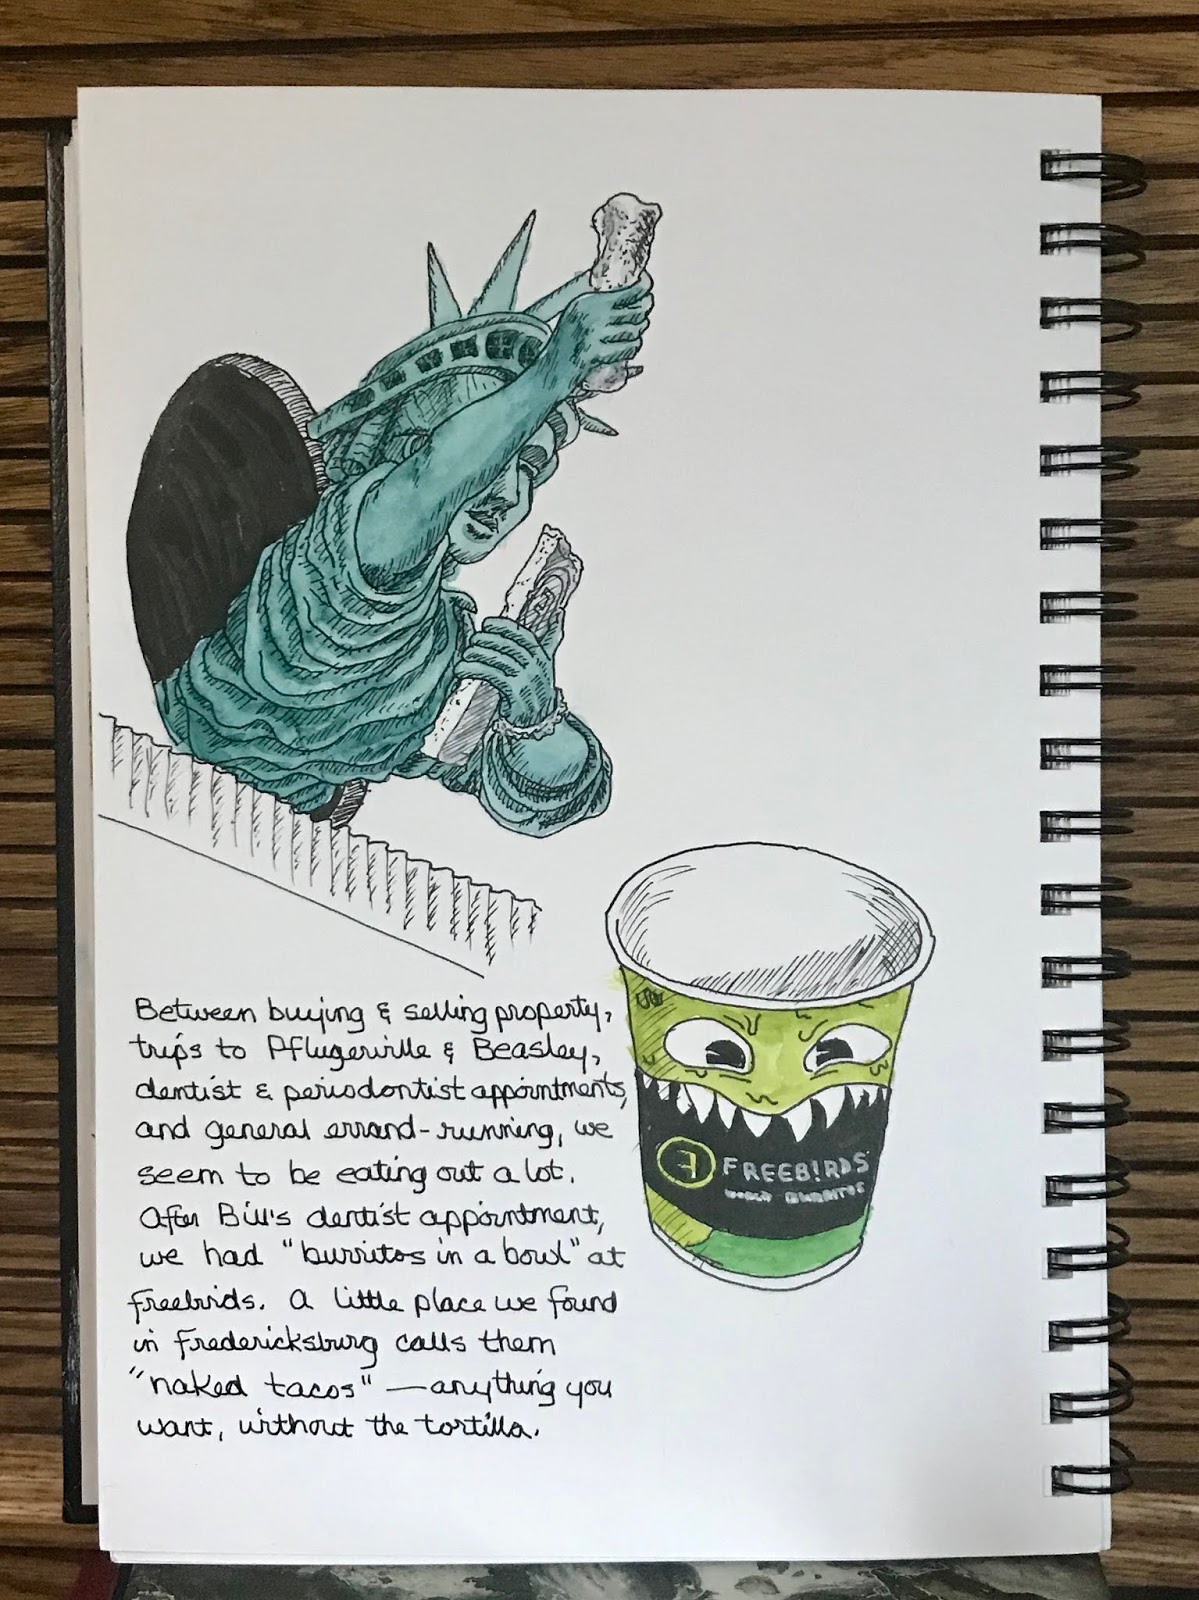 Between buying & selling property,
trips to Pflugerville & Beasley,
dentist & periodontist appointments,
and general errand-running, we
seem to be eating out a lot.
After Bill's dentist appointment,
we had "burritos in a bowl" at
Freebirds. A little place we found
in Fredericksburg calls them
"naked tacos" —anything you
want, without the tortilla.
FREEB!RDS
WORLD BURRITOS